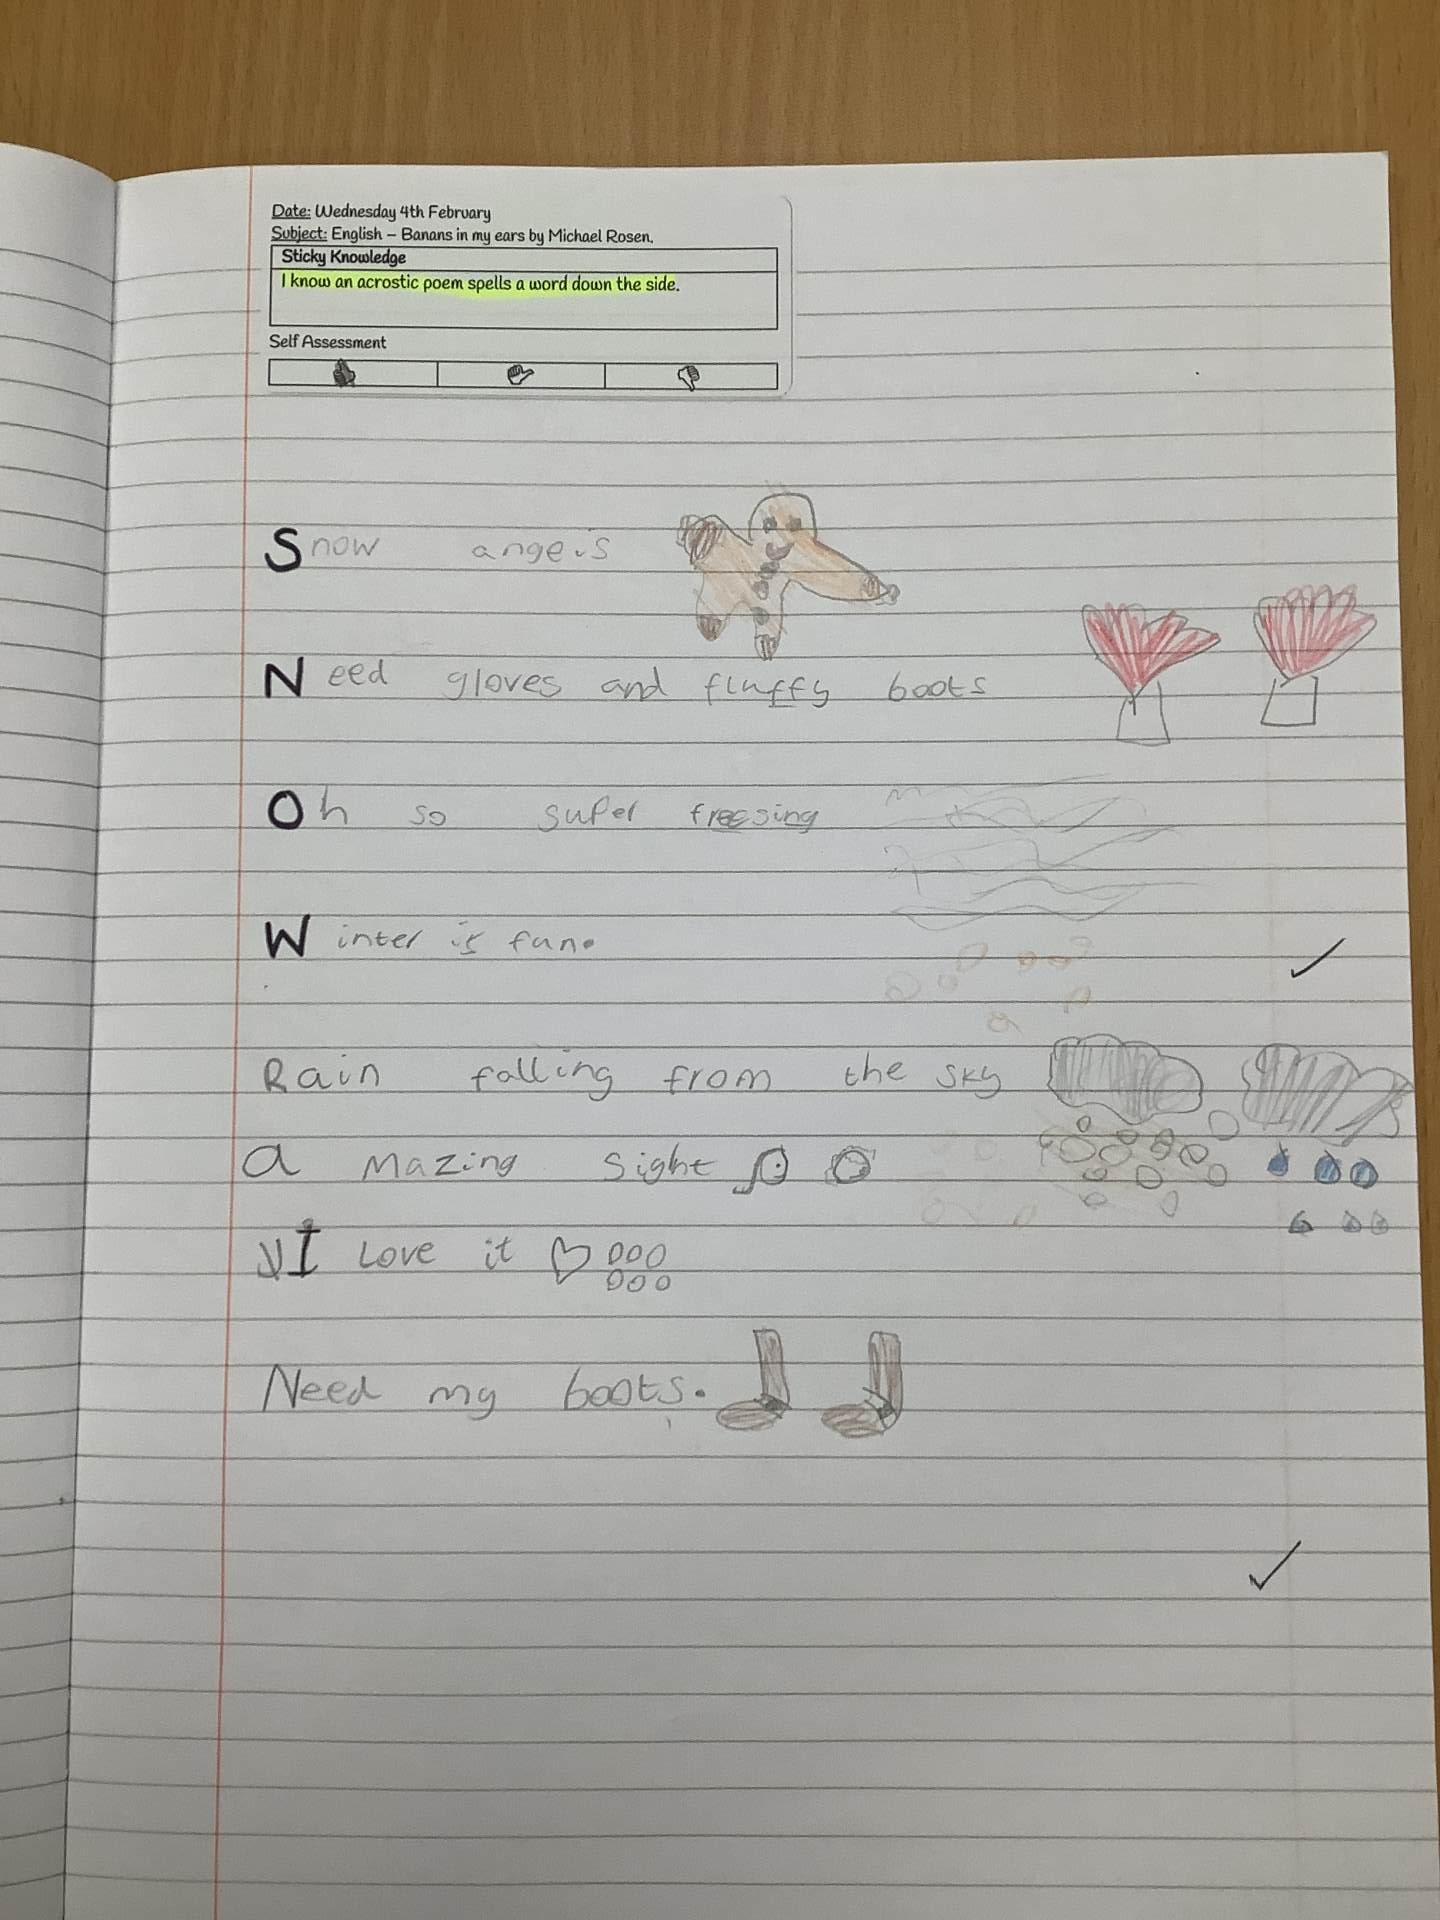 Date: Wednesday 4th February
Subject: English – Banans in my ears by Michael Rosen.
Sticky Knowledge
I know an acrostic poem spells a word down the side.
Self Assessment
Snow angels
Need gloves and fluffy boots
Oh so super freesing
Winter is fun.
Rain falling from the sky
a mazing sight
I Love it
Need my boots.